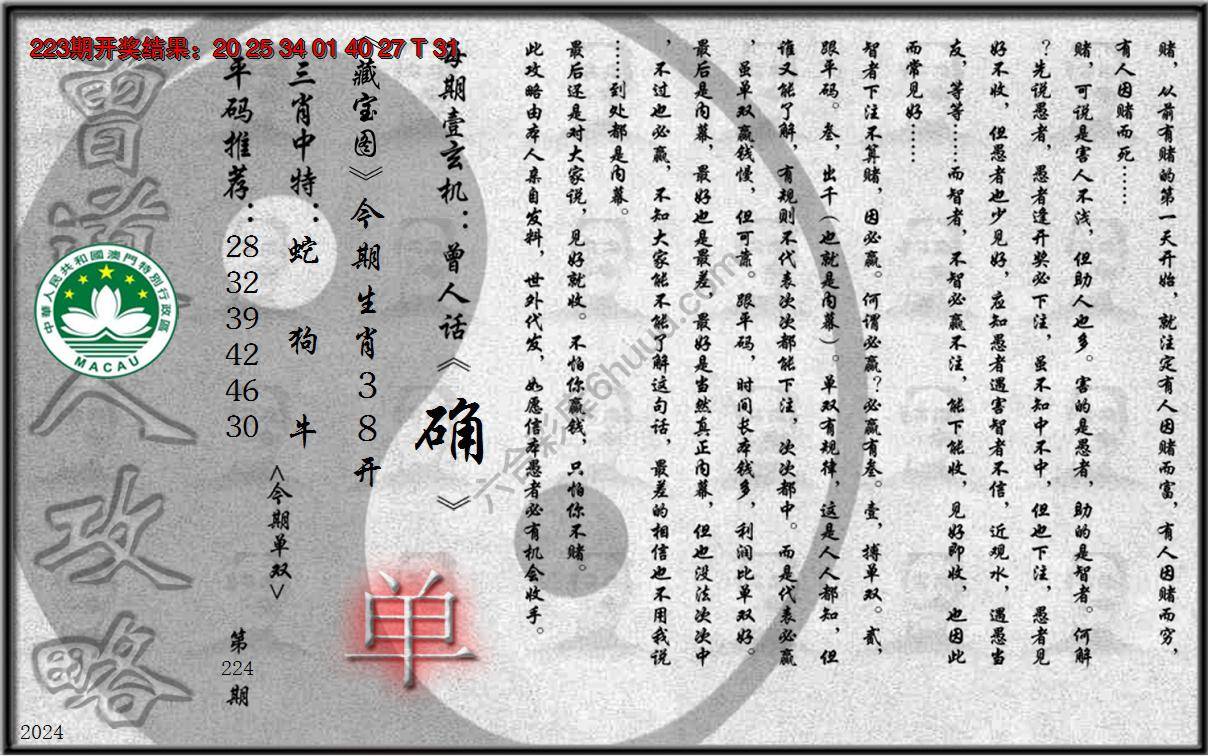 223期开奖结果：20 25 34 01 40 27 T 31
赌，从前有赌的第一天开始，就注定有人因赌而富，有人因赌而穷，
有人因赌而死……
赌，可说是害人不浅，但助人也多。害的是愚者，助的是智者。何解
？先说愚者，愚者逢开奖必下注，虽不知中不中，但也下注，愚者见
好不收，但愚者也少见好，应知愚者遇害智者不信，近观水，遇愚当
友，等等……而智者，不智必赢不注，能下能收，见好即收，也因此
而常见好……
智者下注不算赌，因必赢。何谓必赢？必赢有叁。壹，搏单双。贰，
跟平码。叁，出千（也就是内幕）。单双有规律，这是人人都知，但
谁又能了解，有规则不代表次次都能下注，次次都中。而是代表必赢
，虽单双赢钱慢，但可靠。跟平码，时间长本钱多，利润比单双好。
最后是内幕，最好也是最差，最好是当然真正内幕，但也没法次次中
，不过也必赢，不知大家能不能了解这句话，最差的相信也不用我说
……到处都是内幕。
最后还是对大家说，见好就收。不怕你赢钱，只怕你不赌。
此攻略由本人亲自发料，世外代发，如愿信本愚者必有机会收手。
每期壹玄机：曾人话《确》
《藏宝图》今期生肖38开
三肖中特：蛇 狗 牛
平码推荐：28 32 39 42 46 30
<今期单双>
单
第224期
曾道人攻略
中華人民共和國澳門特別行政區
MACAU
六合彩库6huuu.com
2024